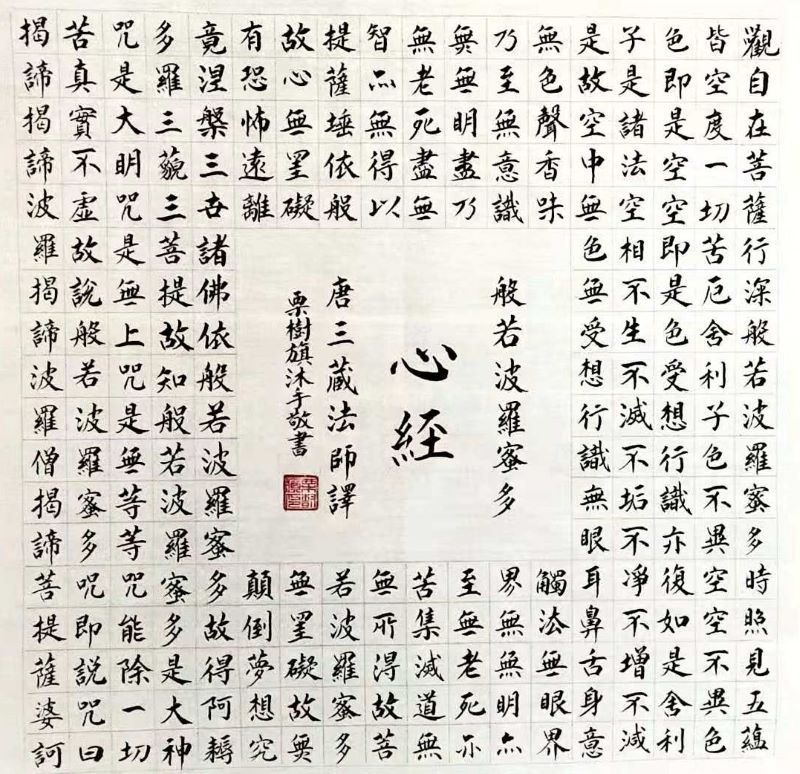 觀自在菩薩行深般若波羅蜜多時照見五蘊
皆空度一切苦厄舍利子色不異空空不異色
色即是空空即是色受想行識亦復如是舍利
子是諸法空相不生不滅不垢不淨不增不減
是故空中無色無受想行識無眼耳鼻舌身意
無色聲香味觸法無眼界
乃至無意識界無無明亦
無無明盡乃至無老死亦
無老死盡無苦集滅道無
智亦無得以無所得故菩
提薩埵依般若波羅蜜多
故心無罣礙無罣礙故無
有恐怖遠離顛倒夢想究
竟涅槃三世諸佛依般若波羅蜜多故得阿耨
多羅三藐三菩提故知般若波羅蜜多是大神
咒是大明咒是無上咒是無等等咒能除一切
苦真實不虛故說般若波羅蜜多咒即說咒曰
揭諦揭諦波羅揭諦波羅僧揭諦菩提薩婆訶
般若波羅蜜多
心経
唐三蔵法師譯
栗樹旗沐手敬書